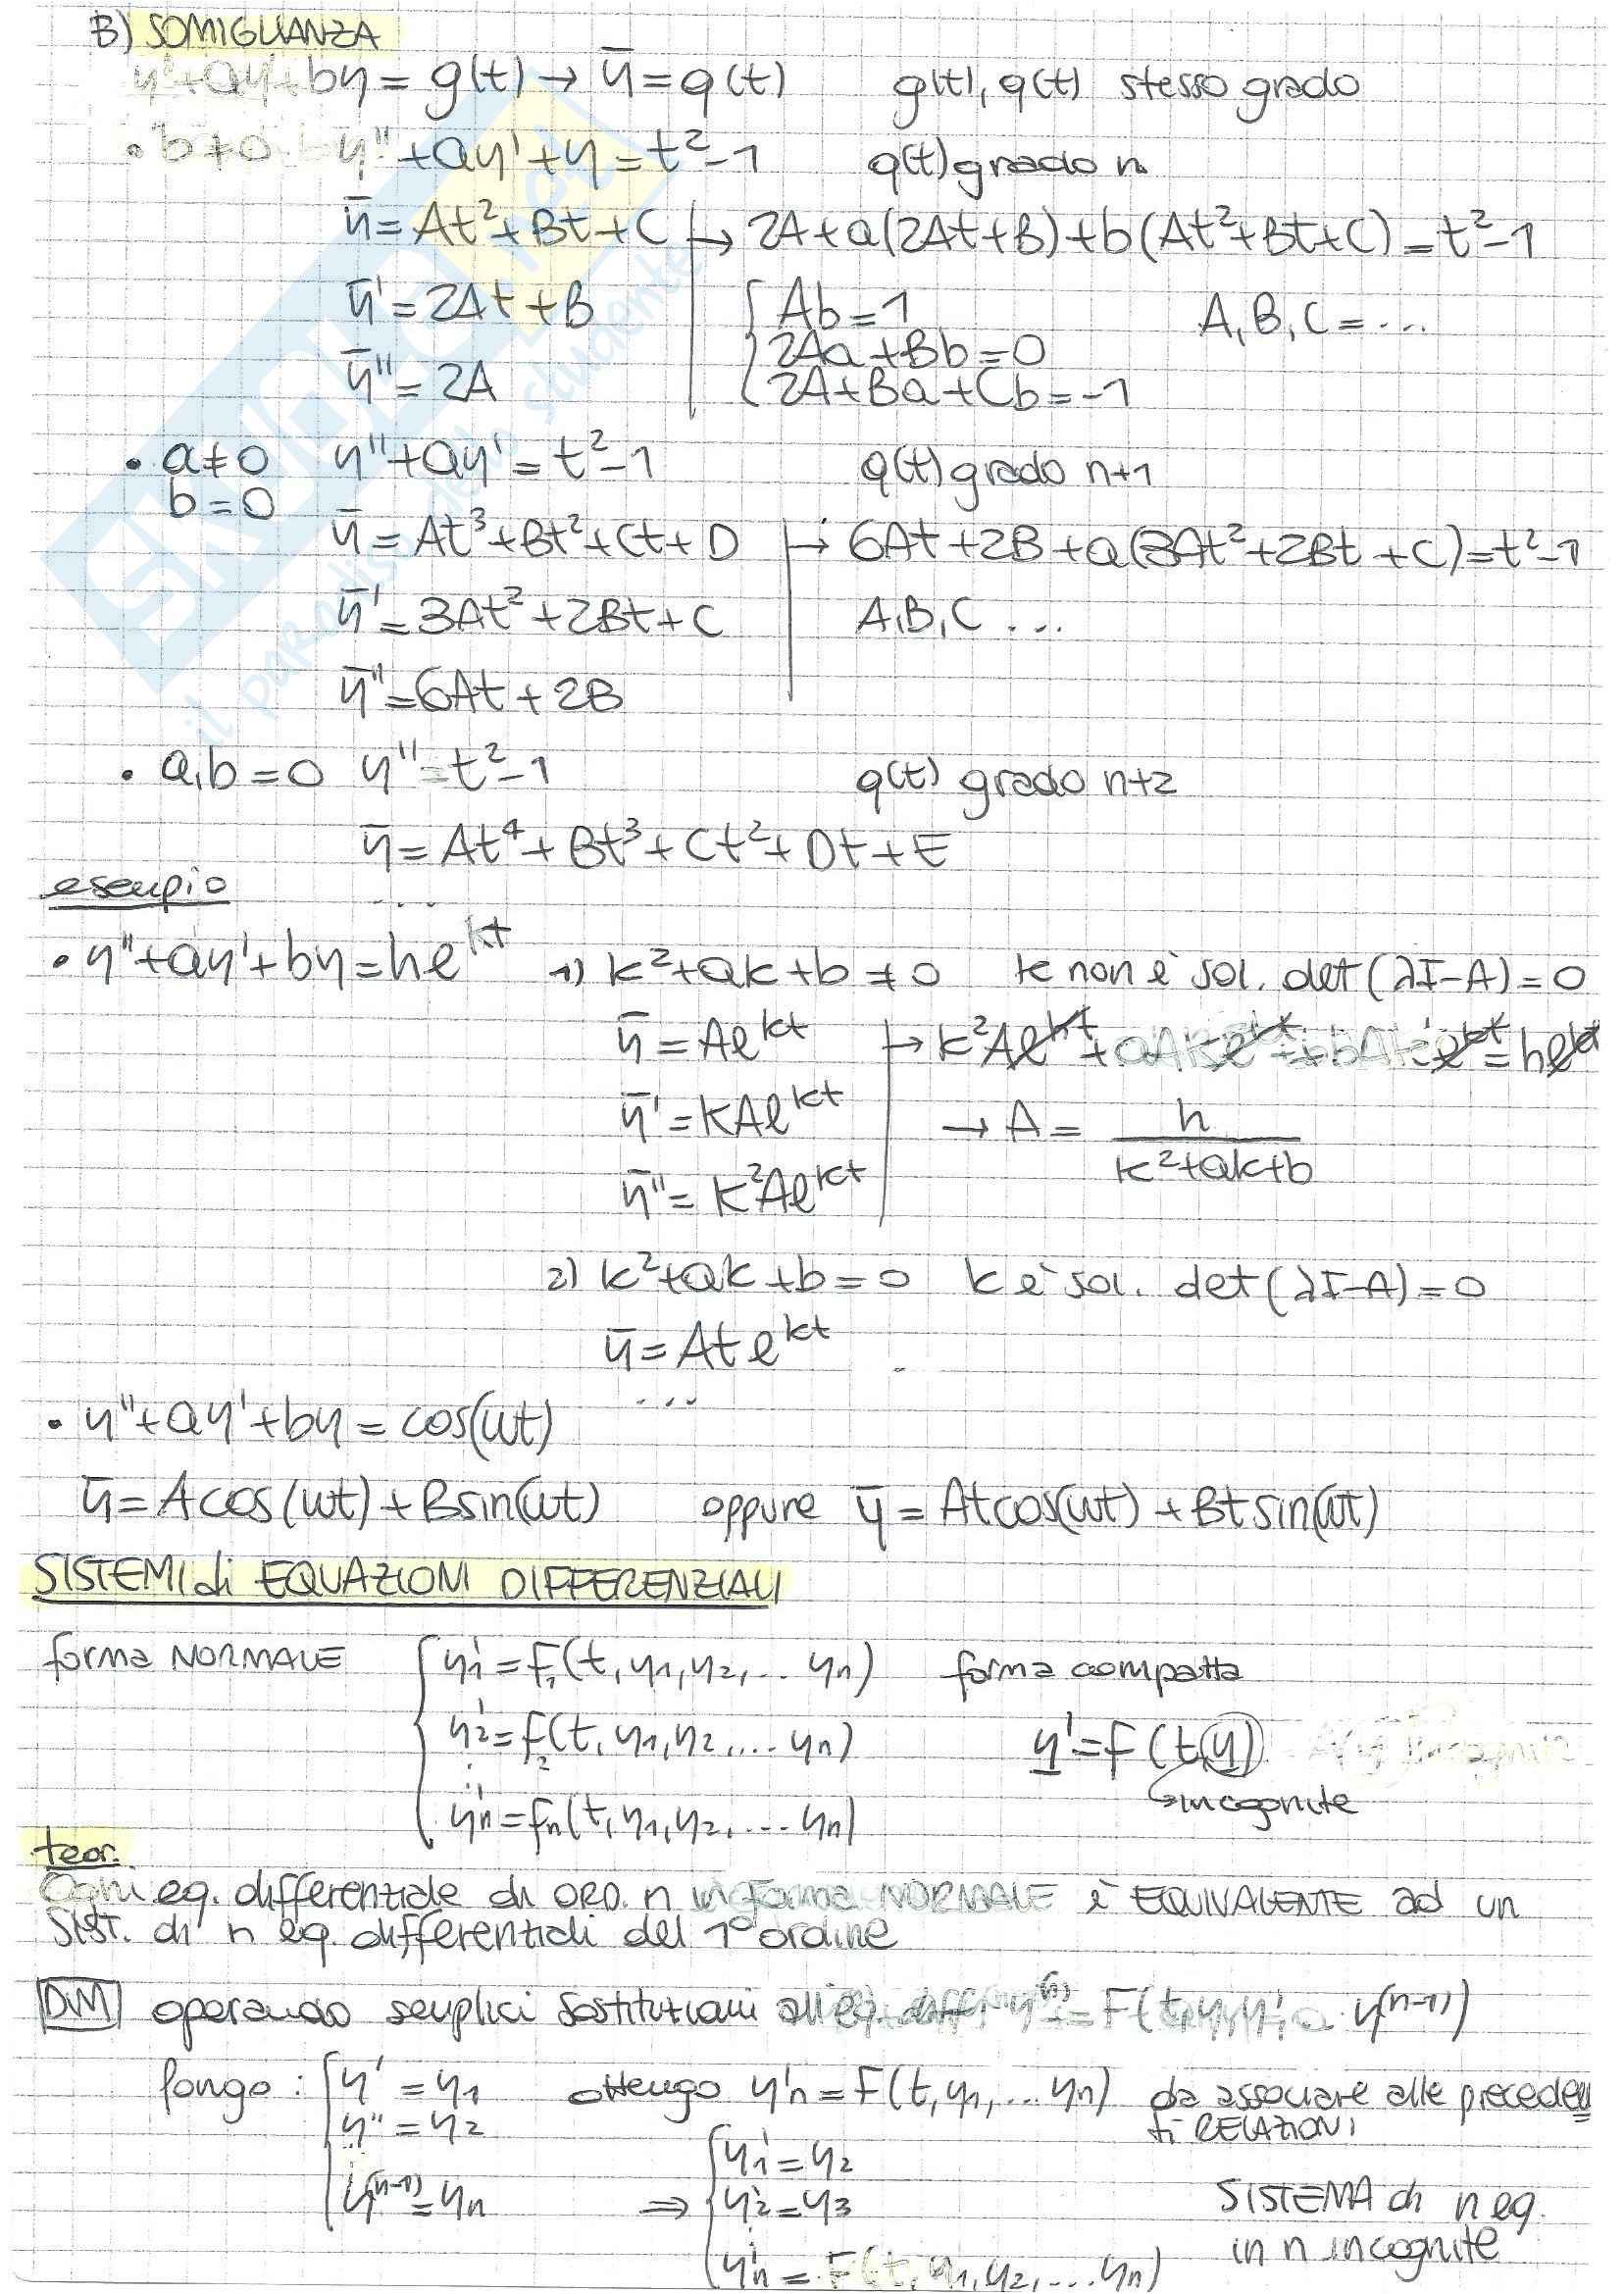 B) SOMIGLIANZA
y''+ay'+by = g(t) → ȳ = q(t) g(t), q(t) stesso grado
• b≠0 y''+ay'+y = t²-1 q(t) grado n
ȳ = At²+Bt+C → 2A+a(2At+B)+b(At²+Bt+C) = t²-1
ȳ' = 2At+B { Ab=1 A,B,C = ...
2Aa+Bb=0
ȳ'' = 2A 2A+Ba+Cb=-1
• a≠0 y''+ay' = t²-1 q(t) grado n+1
b=0
ȳ = At³+Bt²+Ct+D → 6At+2B+a(3At²+2Bt+C) = t²-1
ȳ' = 3At²+2Bt+C A,B,C ...
ȳ'' = 6At+2B
• a,b=0 y'' = t²-1 q(t) grado n+2
ȳ = At⁴+Bt³+Ct²+Dt+E
esempio ...
• y''+ay'+by = he^kt 1) k²+ak+b ≠ 0 k non è sol. det(λI-A)=0
ȳ = Ae^kt → k²Ae^kt + aAke^kt + bAe^kt = he^kt
ȳ' = kAe^kt → A = h / (k²+ak+b)
ȳ'' = k²Ae^kt
2) k²+ak+b = 0 k è sol. det(λI-A)=0
ȳ = Ate^kt
...
• y''+ay'+by = cos(ωt)
ȳ = Acos(ωt)+Bsin(ωt) oppure ȳ = Atcos(ωt)+Btsin(ωt)
SISTEMI di EQUAZIONI DIFFERENZIALI
forma NORMALE { y₁' = f₁(t, y₁, y₂, ... yn) forma compatta
y₂' = f₂(t, y₁, y₂, ... yn) y' = F(t,y)
⋮ incognite
yn' = fn(t, y₁, y₂, ... yn)
teor.
Ogni eq. differenziale di ORD. n in forma NORMALE è EQUIVALENTE ad un
sist. di n eq. differenziali del 1° ordine
DIM operando semplici sostituzioni all'eq. diff. y⁽ⁿ⁾ = F(t, y, y', ... y⁽ⁿ⁻¹⁾)
Pongo: { y' = y₁ ottengo y'n = F(t, y₁, ... yn) da associare alle preceden
y'' = y₂ ti RELAZIONI
⋮ { y₁' = y₂
y⁽ⁿ⁻¹⁾ = yn ⇒ y₂' = y₃ SISTEMA di n eq.
⋮ in n incognite
yn' = F(t, y₁, y₂, ... yn)
il paradiso dello studente